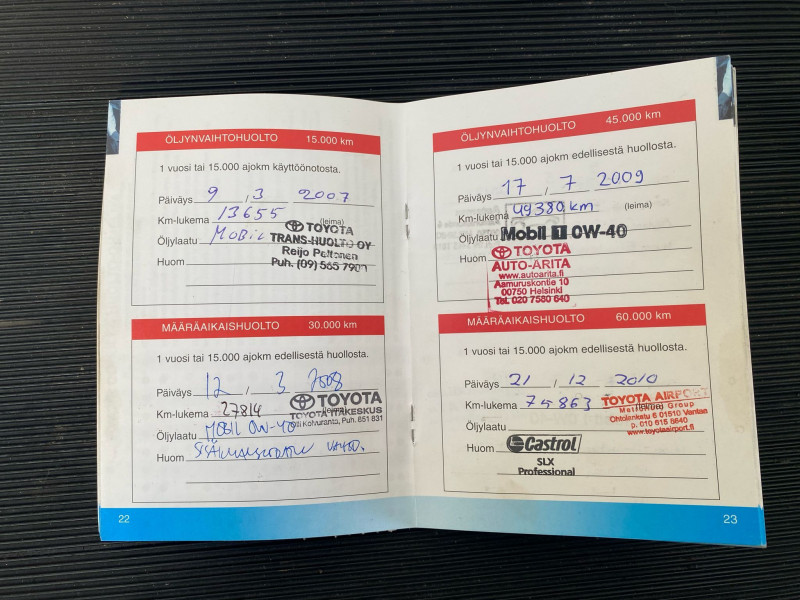 ÖLJYNVAIHTOHUOLTO 15.000 km
1 vuosi tai 15.000 ajokm käyttöönotosta.
Päiväys 9 , 3 2007
Km-lukema 13655 (leima)
Öljylaatu MOBIL
Huom
TOYOTA
TRANS-HUOLTO OY
Reijo Peltonen
Puh. (09) 565 7900
MÄÄRÄAIKAISHUOLTO 30.000 km
1 vuosi tai 15.000 ajokm edellisestä huollosta.
Päiväys 12 / 3 2008
Km-lukema 27814
Öljylaatu MOBIL 0W-40
Huom
TOYOTA
TOYOTA ITÄKESKUS
Puh. 851 831
22
ÖLJYNVAIHTOHUOLTO 45.000 km
1 vuosi tai 15.000 ajokm edellisestä huollosta.
Päiväys 17 , 7 2009
Km-lukema 49380 km (leima)
Öljylaatu Mobil 1 0W-40
Huom
TOYOTA
AUTO-ARITA
www.autoarita.fi
Aamuruskontie 10
00750 Helsinki
Tel. 020 7580 640
MÄÄRÄAIKAISHUOLTO 60.000 km
1 vuosi tai 15.000 ajokm edellisestä huollosta.
Päiväys 21 / 12 2010
Km-lukema 75863 (leima)
Öljylaatu
Huom Castrol
SLX
Professional
TOYOTA AIRPORT
Group
Ohtolankatu 6 01510 Vantaa
www.toyotaairport.fi
23